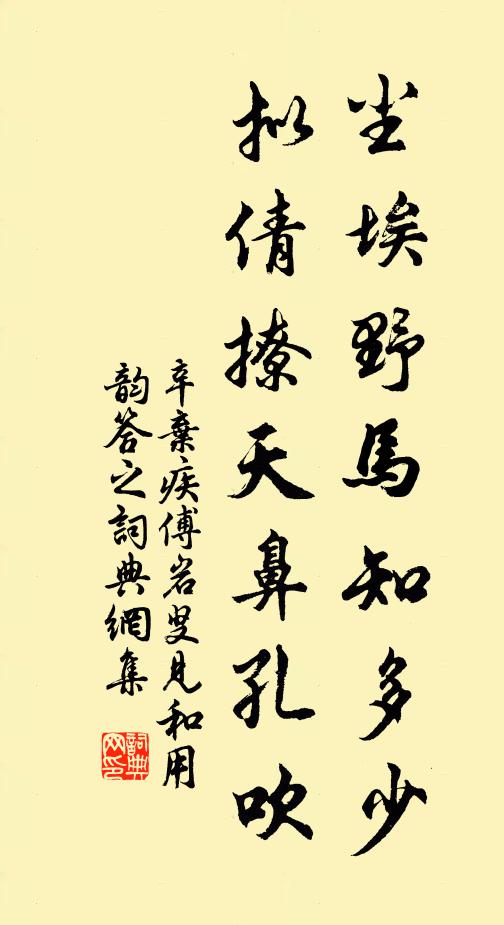 尘埃野馬知多少
拟倩撩天鼻孔吹
辛棄疾傅岩叟見和用
韵答之詞典網集
詞典网印